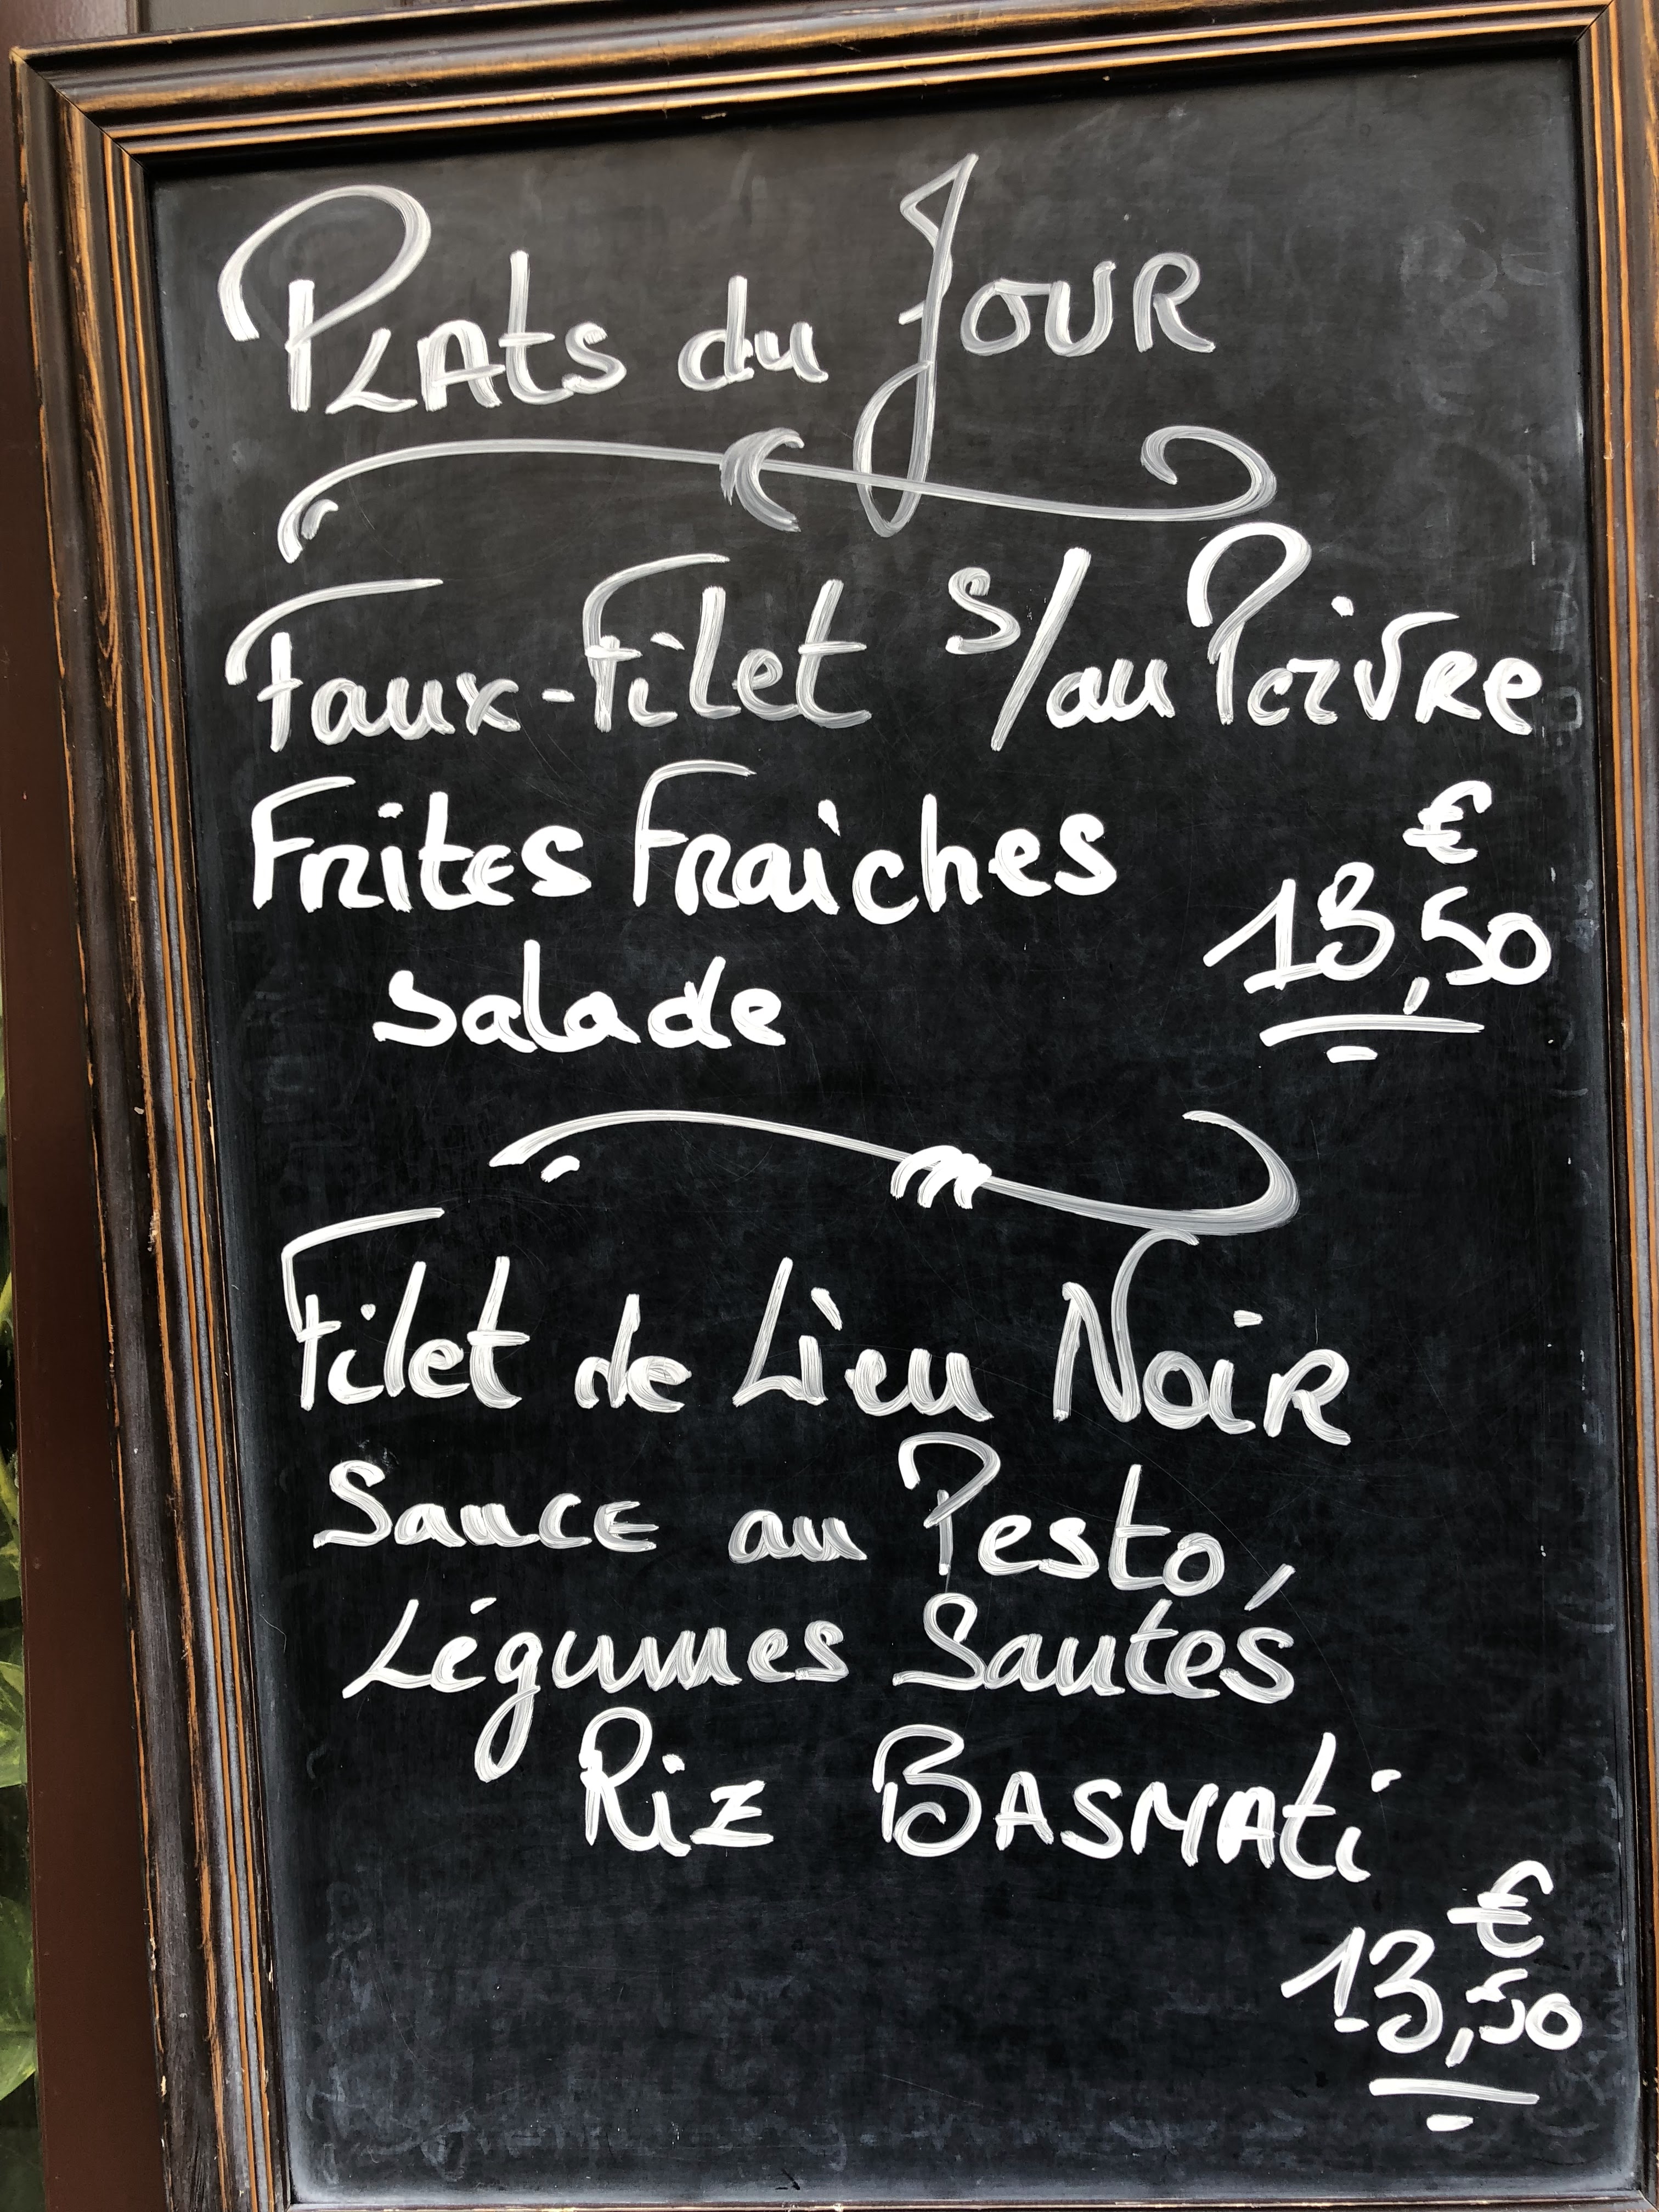 PLAts du JOUR
Faux-Filet s/au Poivre
Frites Fraiches
€
Salade
13,50
Filet de Lieu Noir
Sauce au Pesto,
Légumes Sautés
Riz BASMAti
€
13,50